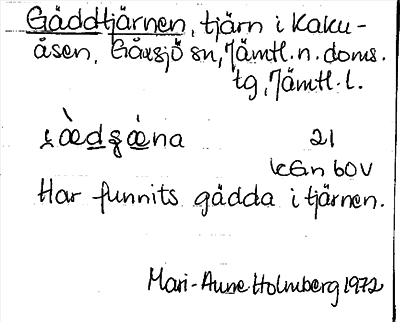 Gäddtjärnen, tjärn i Kaku-
åsen, Gåxsjö sn, Jämtl. n. doms.
tg, Jämtl. l.
21
Har funnits gädda i tjärnen.
Mari-Anne Holmberg 1972